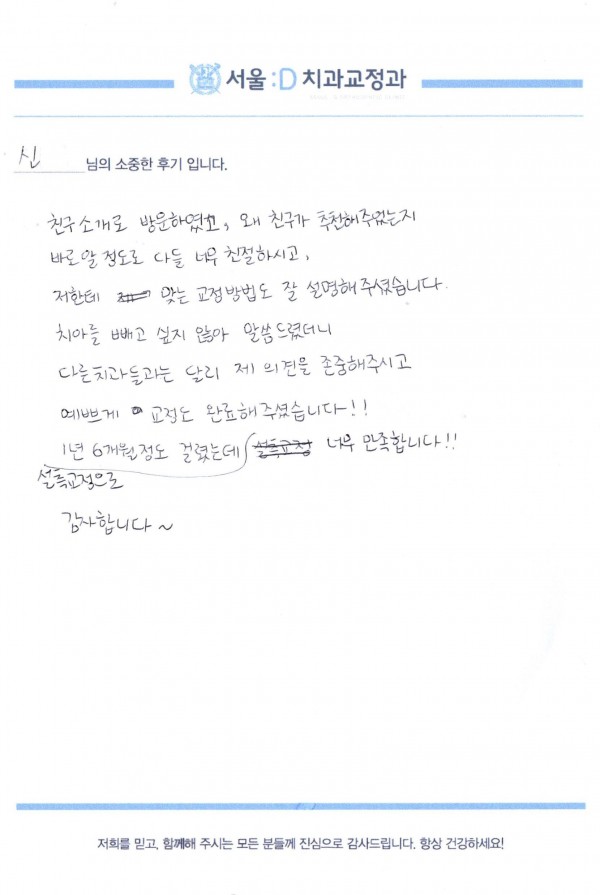 서울:D 치과교정과
신 님의 소중한 후기 입니다.
친구소개로 방문하였고, 왜 친구가 추천해주었는지
바로알 정도로 다들 너무 친절하시고,
저한테 맞는 교정방법도 잘 설명해주셨습니다.
치아를 빼고 싶지 않아 말씀드렸더니
다른치과들과는 달리 제 의견을 존중해주시고
예쁘게 교정도 완료해주셨습니다!!
1년 6개월정도 걸렸는데 설측교정 너무 만족합니다!!
설측교정으로
감사합니다~
저희를 믿고, 함께해 주시는 모든 분들께 진심으로 감사드립니다. 항상 건강하세요!